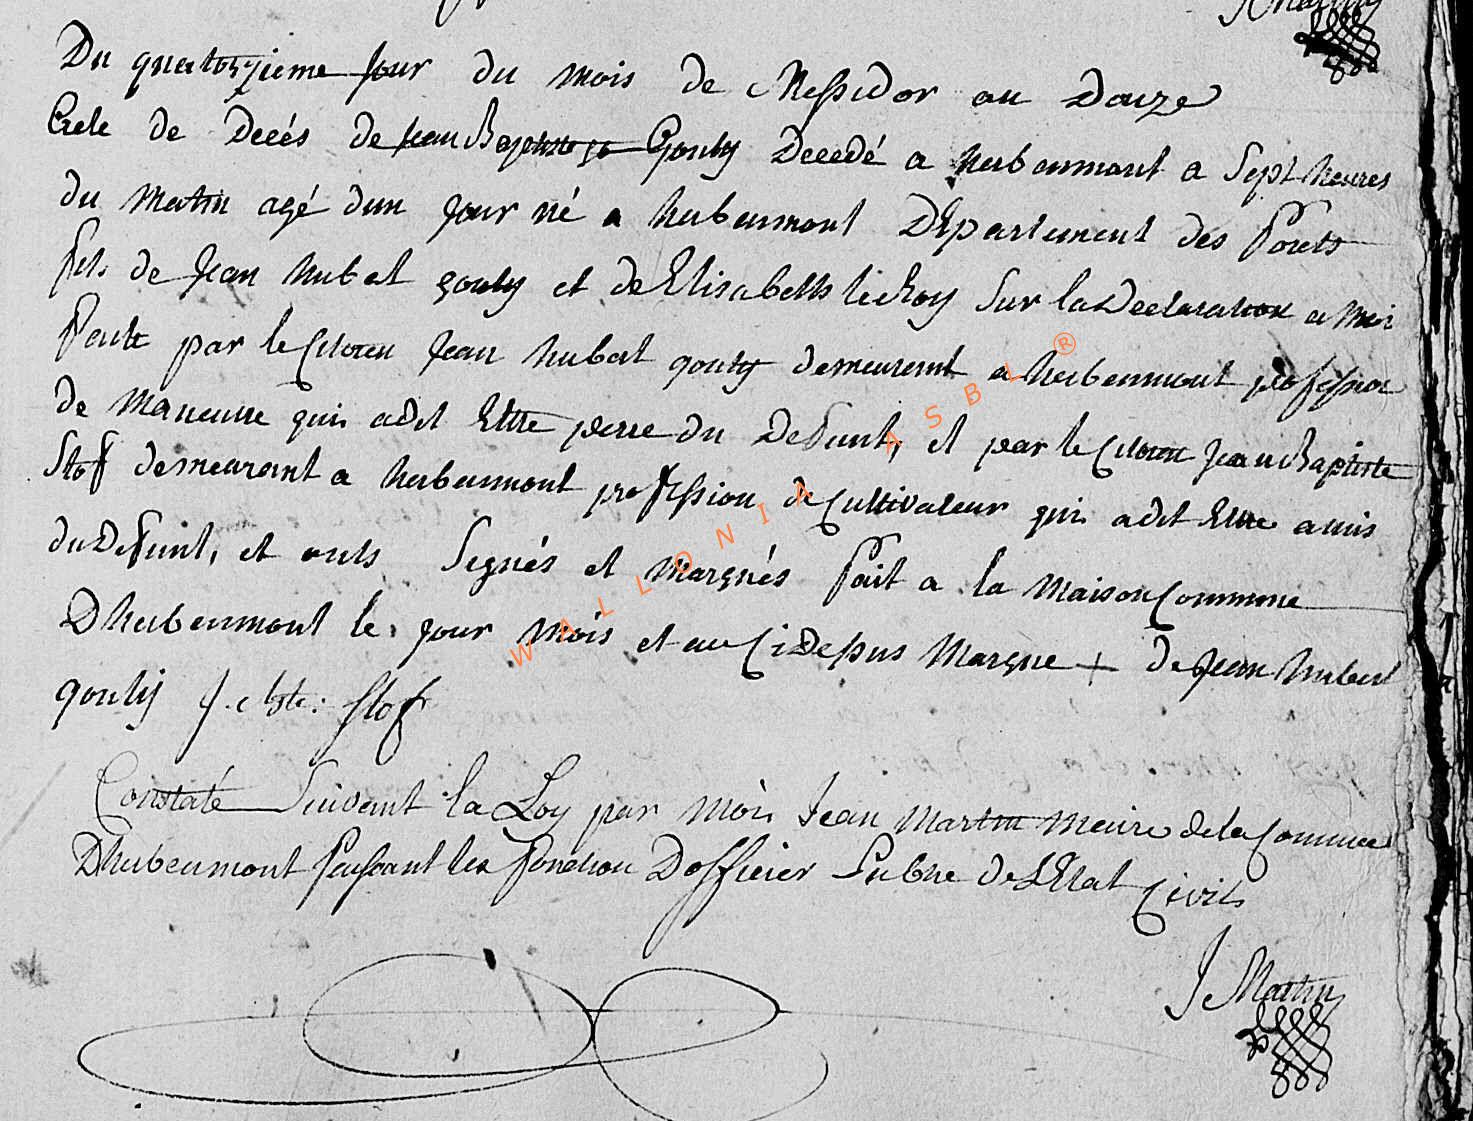 J Martin
Du quatorzieme jour du mois de Messidor an Douze
Acte de Decés de Jean Baptiste Gouly Decedé a herbeumont a Sept heures
du Matin agé dun jour né a herbeumont Departement des Forets
fils de Jean hubert gouly et de Elisabette leroy Sur la Declaration a Moi
faite par le Citoien Jean hubert gouly demeurent a herbeumont profession
de Maneuvre qui adit Ettre perre du Defunt, et par le Citoien Jean Baptiste
Stof demeurant a herbeumont profession de Cultivateur qui adit Ettre amis
du Defunt, et onts Segnés et Margués fait a la Maison Commune
Dherbeumont le jour Mois et an Ci Depsus Marque + de Jean hubert
gouly J. bte: Stof
Constaté Suivant la Loy par Moi Jean Martin Meire de la Commune
Dherbeumont faissant les fonction Dofficier Publie de LEtat Civils
J Martin
WALLONIA ASBL ®